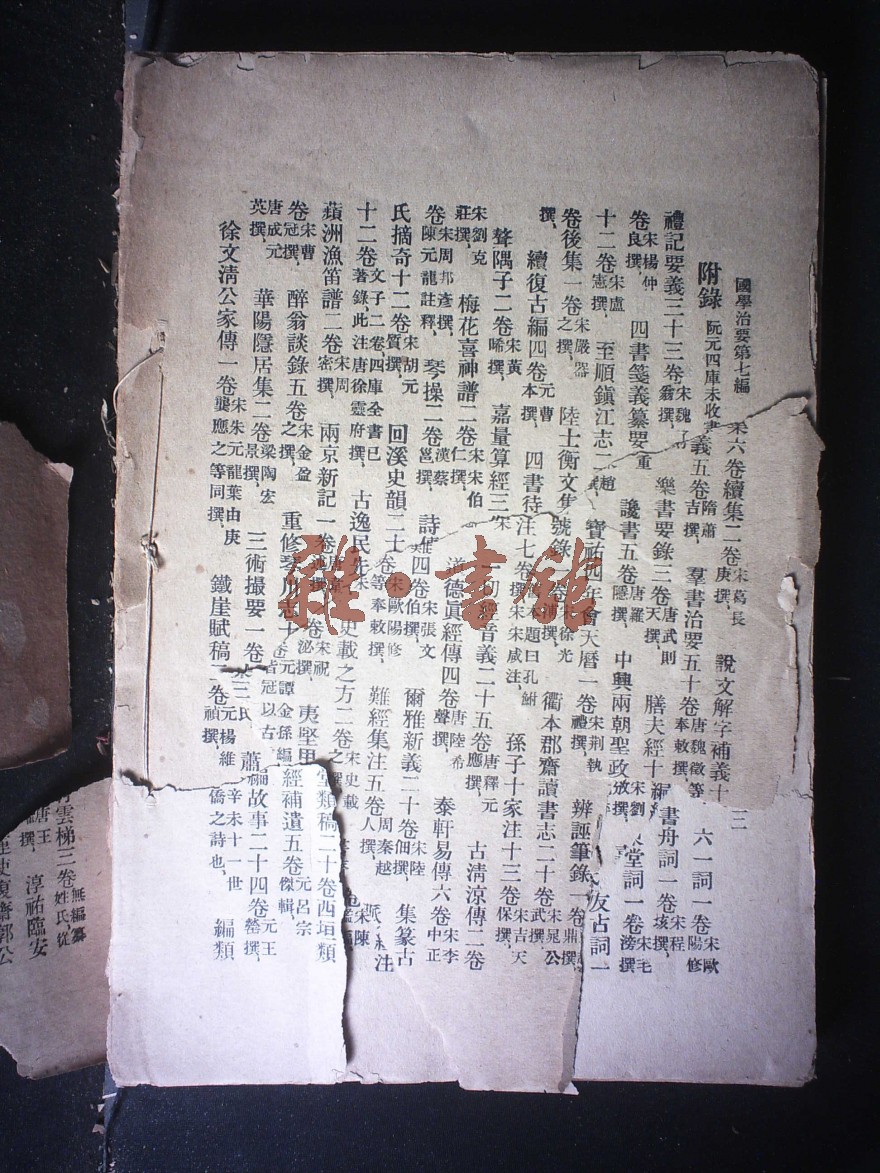 國學治要第七編
三
附錄
阮元四庫未收書
六卷續集二卷宋葛長庚撰、
說文解字補義十
禮記要義三十三卷宋魏了翁撰、
義五卷隋蕭吉撰、
羣書治要五十卷唐魏徵等奉敕撰、
六一詞一卷宋歐陽修
卷宋楊仲良撰、
四書箋義纂要
樂書要錄三卷唐武則天撰、
膳夫經十
書舟詞一卷宋程垓撰、
十二卷宋盧憲撰、
至順鎮江志二
讒書五卷唐羅隱撰、
中興兩朝聖政
堂詞一卷宋毛滂撰
卷後集一卷宋嚴器之撰、
陸士衡文集
寶祐四年會天曆一卷宋荆執禮撰、
辨誣筆錄一卷
友古詞一
撰、
續復古編四卷元曹本撰、
四書待
號錄
宋徐光
衢本郡齋讀書志二十卷宋晁公武撰、
聱隅子二卷宋黃晞撰、
嘉量算經三
注七卷
本題曰孔鮒撰宋宋咸注、
孫子十家注十三卷宋吉天保撰、
宋劉克莊撰、
梅花喜神譜二卷宋宋伯仁撰、
一切經音義二十五卷唐釋元應撰、
古清涼傳二卷
卷宋周邦彥撰、陳元龍註釋、
琴操二卷漢蔡邕撰、
詩
道德眞經傳四卷唐陸希聲撰、
泰軒易傳六卷宋李中正
氏摘奇十二卷宋胡元質撰、
回溪史韻二十
四卷宋張文伯撰、
爾雅新義二十卷宋陸佃撰、
集篆古
十二卷文子二卷、四庫全書已著錄、此注唐徐靈府撰、
古逸民先
卷宋歐陽修等奉敕撰、
難經集注五卷周秦越人撰、
注
蘋洲漁笛譜二卷宋周密撰、
兩京新記一卷
史載之方二卷宋史載之撰
宋陳
卷宋曹冠撰、
醉翁談錄五卷宋金盈之撰、
重修琴川志十
卷宋祝泌撰、
夷堅甲
堂類稿二十卷西垣類
唐成元英撰、
華陽隱居集二卷梁陶宏景撰、
三術撮要一卷
元譚金孫編
冠以古
經補遺五卷元呂宗傑輯、
徐文清公家傳一卷宋朱元龍葉由庚龔應之等同撰、
鐵崖賦稿二卷元楊維禎撰、
蕭
故事二十四卷元王罃撰、
辛未十一世
僑之詩也、
編類
雲梯三卷無編纂姓氏、從
唐王
撰、
淳祐臨安